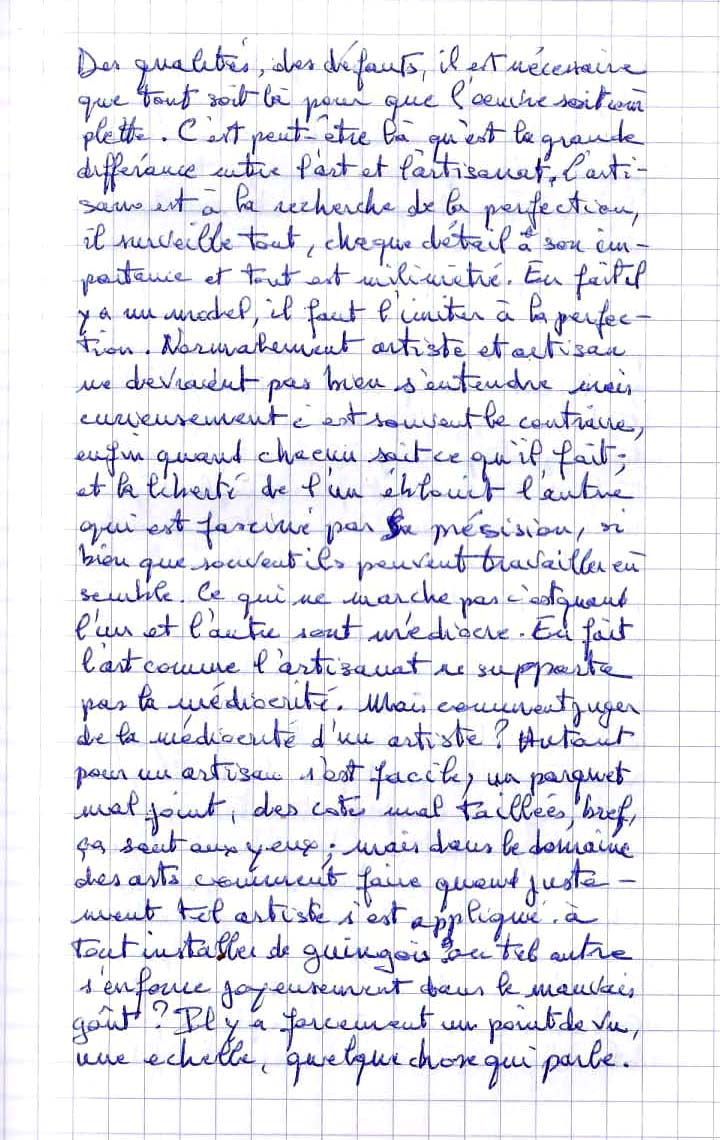 Des qualités, des défauts, il est nécessaire
que tout soit là pour que l'oeuvre soit com
plette. C'est peut-être là qu'est la grande
différance entre l'art et l'artisanat, l'arti-
sans est à la recherche de la perfection,
il surveille tout, chaque détail à son im-
portance et tout est milimétré. En fait il
y a un model, il faut l'imiter à la perfec-
tion. Normalement artiste et artisan
ne devraient pas bien s'entendre mais
curieusement c'est souvent le contraire,
enfin quand chacun sait ce qu'il fait;
et la liberté de l'un éblouit l'autre
qui est fasciné par sa présision, si
bien que souvent ils peuvent travailler en
semble. Ce qui ne marche pas c'est quand
l'un et l'autre sont médiocre. En fait
l'art comme l'artisanat ne supporte
pas la médiocrité. Mais comment juger
de la médiocrité d'un artiste ? Autant
pour un artisan s'est facile, un parquet
mal joint, des cotes mal taillées, bref,
ça saut aux yeux ; mais dans le domaine
des arts comment faire quand juste-
ment tel artiste s'est appliqué à
tout installer de guingois ou tel autre
s'enfonce joyeusement dans le mauvais
goût ? Il y a forcement un point de vu,
une echelle, quelque chose qui parle.